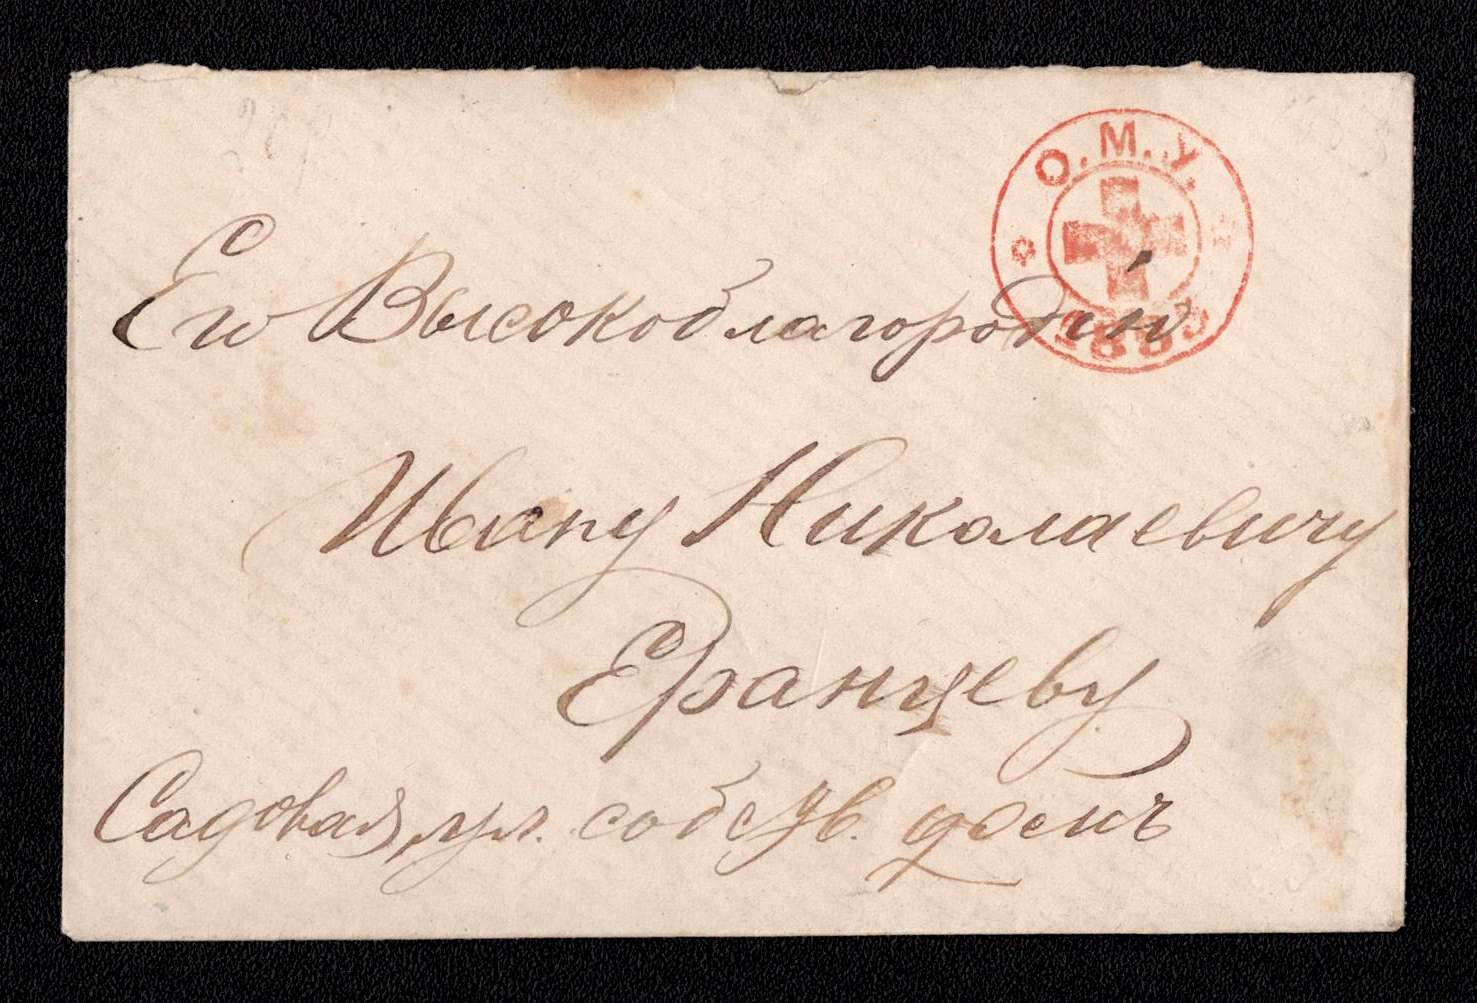 О.М.У.
1883
Его Высокоблагородію
Ивану Николаевичу
Францеву
Садовая ул. собств. домъ